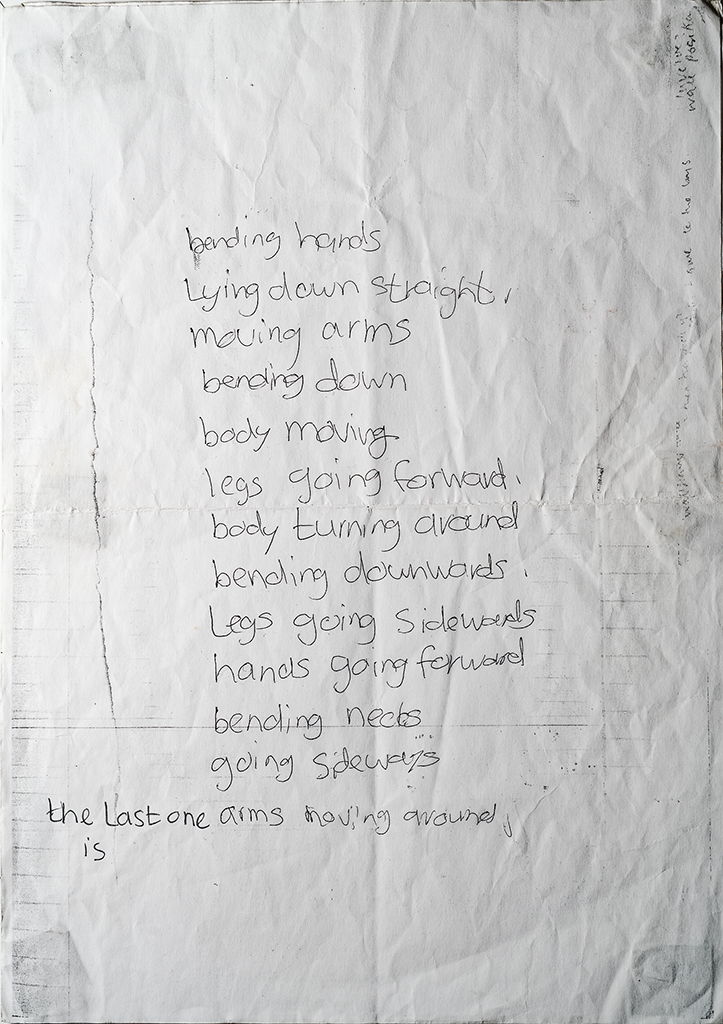 bending hands
Lying down straight,
moving arms
bending down
body moving
legs going forward.
body turning around
bending downwards.
Legs going sidewards
hands going forward
bending necks
going sideways
the Last one arms moving around,
is